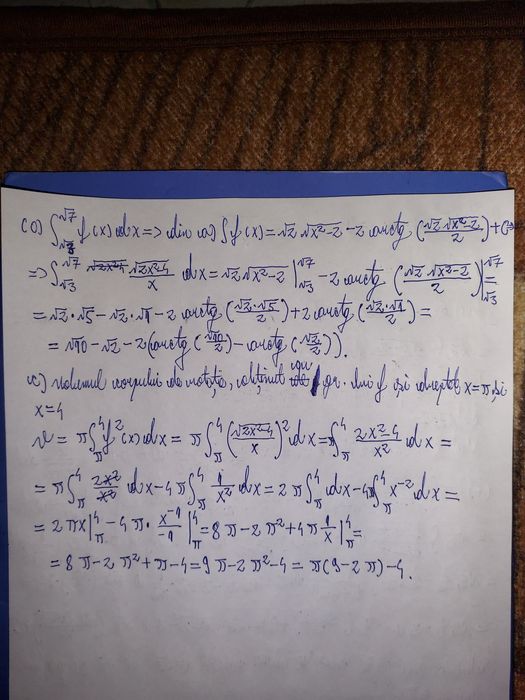 ∫_{√3}^{√7} f(x) dx => din a) ∫ f(x) = √2 √(x²-2) - 2 arctg (√2 √(x²-2)/2) + C =>
=> ∫_{√3}^{√7} √(2x²-4)/x dx = √2 √(x²-2) |_{√3}^{√7} - 2 arctg (√2 √(x²-2)/2) |_{√3}^{√7} =
= √2·√5 - √2·√1 - 2 arctg (√2·√5/2) + 2 arctg (√2·√1/2) =
= √10 - √2 - 2(arctg (√10/2) - arctg (√2/2)).
c) Volumul corpului de rotație, obținut gr. lui f și dreptele x = π, și
x = 4
V = π∫_π^4 f²(x) dx = π∫_π^4 (√(2x²-4)/x)² dx = π∫_π^4 (2x²-4)/x² dx =
= π∫_π^4 2x²/x² dx - 4π∫_π^4 1/x² dx = 2π∫_π^4 dx - 4π∫_π^4 x⁻² dx =
= 2πx|_π^4 - 4π · x⁻¹/-1 |_π^4 = 8π - 2π² + 4π 1/x |_π^4 =
= 8π - 2π² + π - 4 = 9π - 2π² - 4 = π(9 - 2π) - 4.